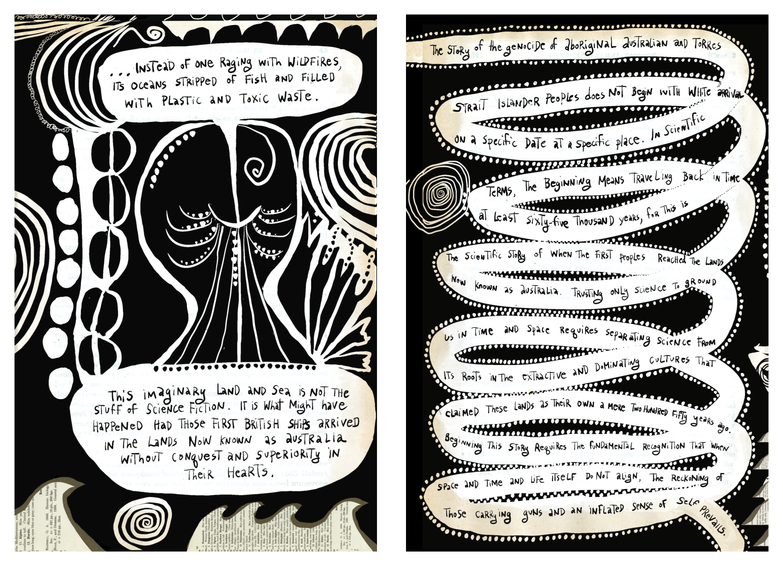 ... INSTEAD OF ONE RAGING WITH WILDFIRES,
ITS OCEANS STRIPPED OF FISH AND FILLED
WITH PLASTIC AND TOXIC WASTE.
THIS IMAGINARY LAND AND SEA IS NOT THE
STUFF OF SCIENCE FICTION. IT IS WHAT MIGHT HAVE
HAPPENED HAD THOSE FIRST BRITISH SHIPS ARRIVED
IN THE LANDS NOW KNOWN AS AUSTRALIA
WITHOUT CONQUEST AND SUPERIORITY IN
THEIR HEARTS.
THE STORY OF THE GENOCIDE OF ABORIGINAL AUSTRALIAN AND TORRES
STRAIT ISLANDER PEOPLES DOES NOT BEGIN WITH WHITE ARRIVAL
ON A SPECIFIC DATE AT A SPECIFIC PLACE. IN SCIENTIFIC
TERMS, THE BEGINNING MEANS TRAVELING BACK IN TIME
AT LEAST SIXTY-FIVE THOUSAND YEARS, FOR THIS IS
THE SCIENTIFIC STORY OF WHEN THE FIRST PEOPLES REACHED THE LANDS
NOW KNOWN AS AUSTRALIA. TRUSTING ONLY SCIENCE TO GROUND
US IN TIME AND SPACE REQUIRES SEPARATING SCIENCE FROM
ITS ROOTS IN THE EXTRACTIVE AND DOMINATING CULTURES THAT
CLAIMED THESE LANDS AS THEIR OWN A MERE TWO HUNDRED FIFTY YEARS AGO.
BEGINNING THIS STORY REQUIRES THE FUNDAMENTAL RECOGNITION THAT WHEN
SPACE AND TIME AND LIFE ITSELF DO NOT ALIGN, THE RECKONING OF
THOSE CARRYING GUNS AND AN INFLATED SENSE OF SELF PREVAILS.